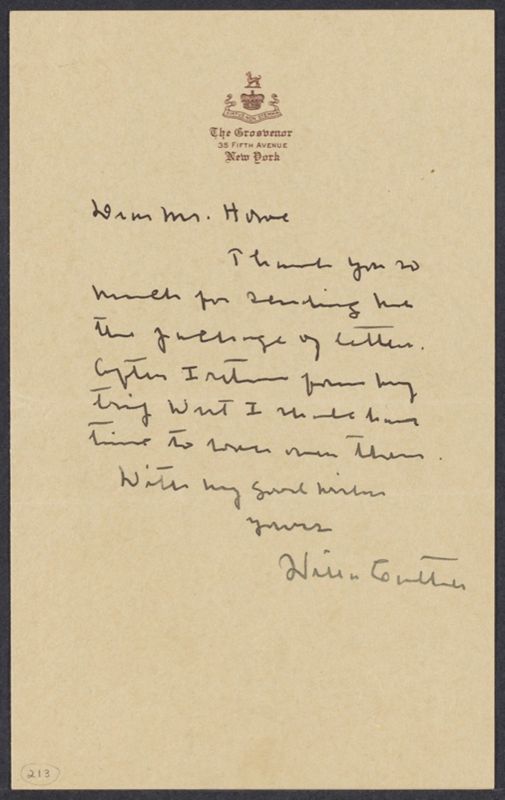 The Grosvenor
35 FIFTH AVENUE
New York
Dear Mr. Howe
Thank you so
much for sending me
the package of letters.
After I return from my
trip West I shall have
time to look over them.
With my good wishes
yours
Willa Cather
213